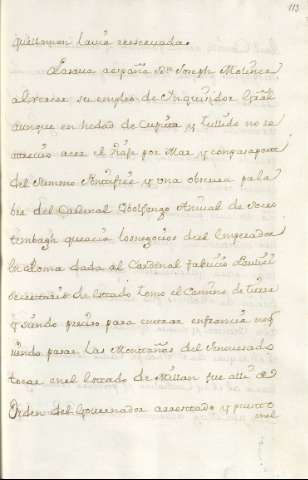 113
quisizaron havia reservada.
Pasava a españa Dn Joseph Molines
a exercer su empleo de Inquisidor Gral
aunque en hedad de Cupita y tullido no se
atrevio acer el viaje por Mar y con pasaporte
del Summo Pontifice y una obscura pala
bra del Cardenal Wolfango Anival de Scrot
tembagh que acia los negocios del Emperador
en Roma dada al Cardenal fabricio Paulici
Secretario de Estado tomo el Camino de tierra
y siendo preciso para entrar en francia no
siendo pasar las Montañas del Monserrato
tocar en el Estado de Millan fue alli de
Orden del Governador arrestado y puesto
en el